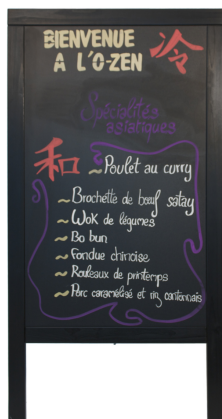 BIENVENUE
A L'O-ZEN
冷
Spécialités
asiatiques
和
~Poulet au curry
~Brochette de bœuf satay
~Wok de légumes
~Bo bun
~Fondue chinoise
~Rouleaux de printemps
~Porc caramélisé et riz cantonnais